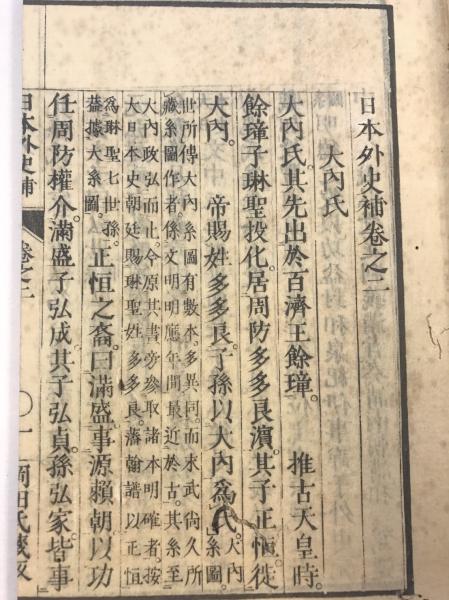 日本外史補卷之二
大內氏
大內氏其先出於百濟王餘璋。 推古天皇時。
餘璋子琳聖投化。居周防多多良濱。其子正恒。徙
大內。 帝賜姓多多良。子孫以大內爲氏。大內系圖。
世所傳大內系圖有數本。多異同。而末武尚久所
藏系圖作者。係文明明應年間。最近於古。其系至
大內政弘而止。今原其書。旁參取諸本明確者。按
大日本史。朝廷賜琳聖姓多多良。藩翰譜以正恒
爲琳聖七世孫。
蓋據大系圖。
正恒之裔曰滿盛。事源賴朝。以功
任周防權介。滿盛子弘成。其子弘貞。孫弘家。皆事
日本外史補 卷之二 〇一 岡田氏藏